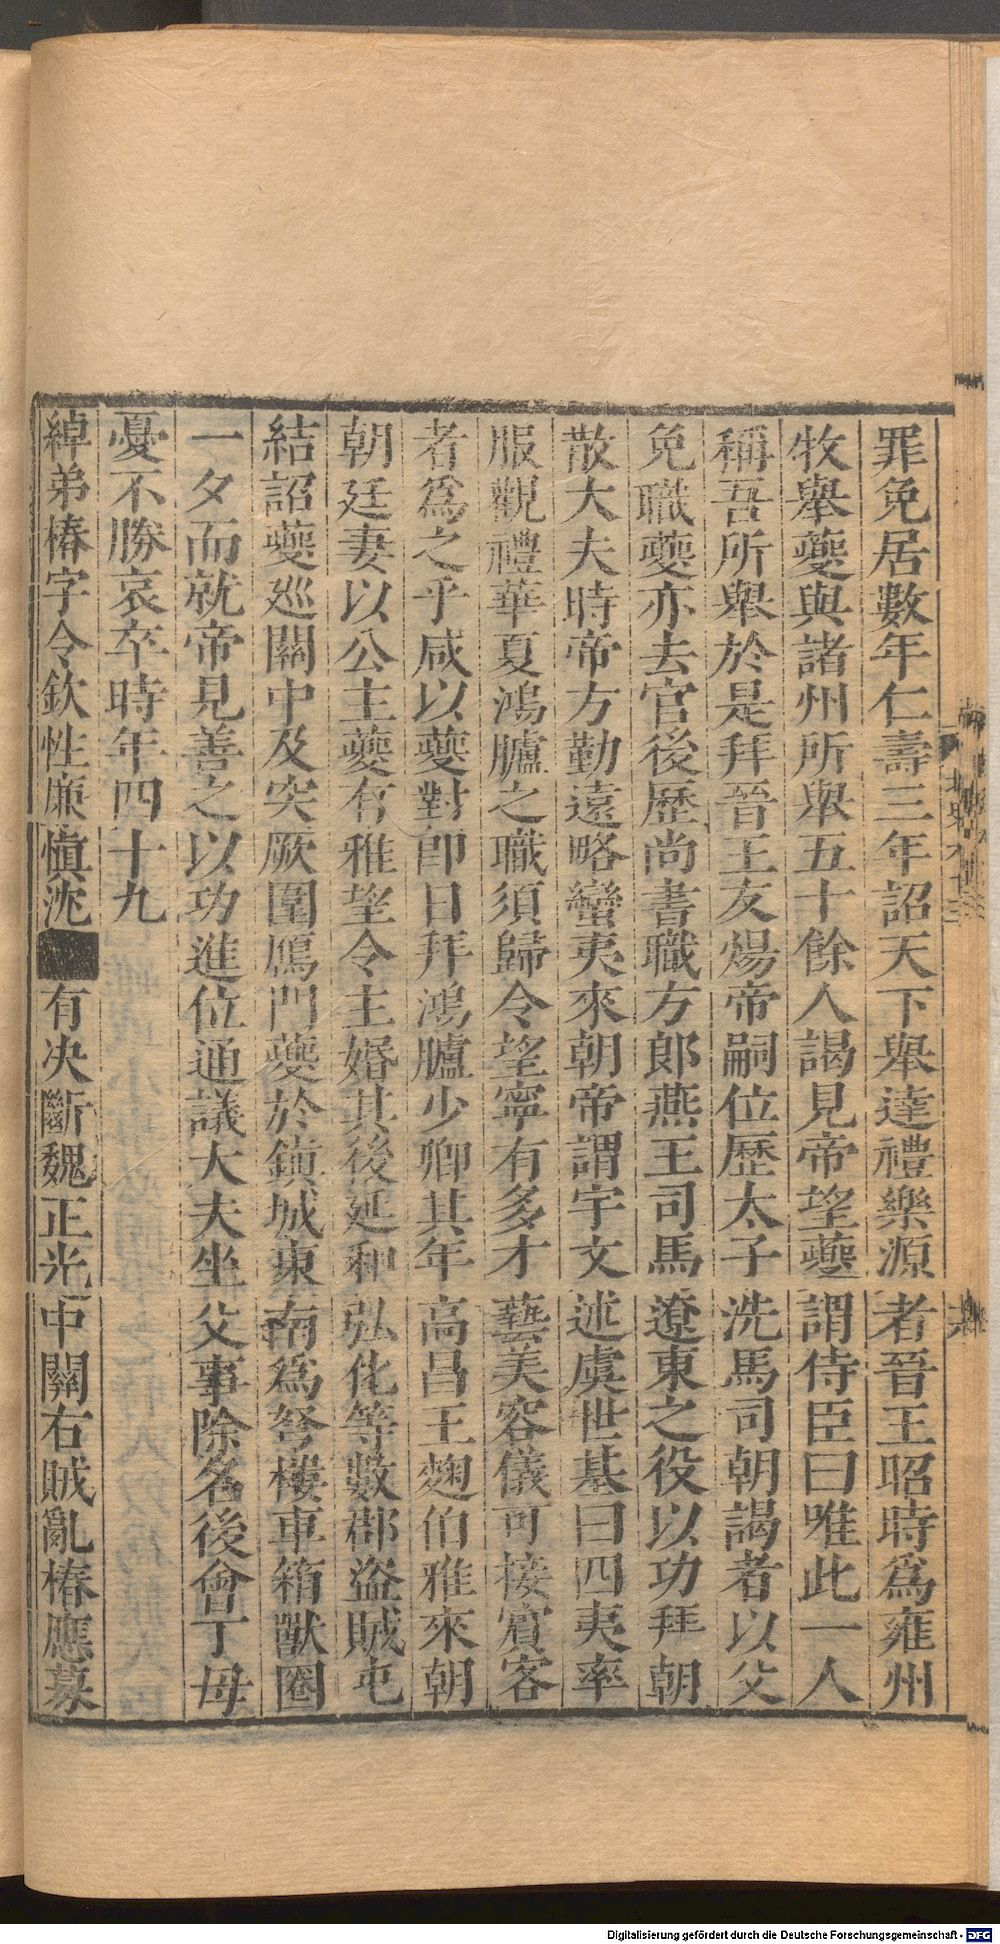 罪免居數年仁壽三年詔天下舉達禮樂源者晉王昭時爲雍州
牧舉夔與諸州所舉五十餘人謁見帝望夔謂侍臣曰唯此一人
稱吾所舉於是拜晉王友煬帝嗣位歷太子洗馬司朝謁者以父
免職夔亦去官後歷尚書職方郎燕王司馬遼東之役以功拜朝
散大夫時帝方勤遠略蠻夷來朝帝謂宇文述虞世基曰四夷率
服觀禮華夏鴻臚之職須歸令望寧有多才藝美容儀可接賓客
者爲之乎咸以夔對即日拜鴻臚少卿其年高昌王麴伯雅來朝
朝廷妻以公主夔有雅望令主婚其後延和弘化等數郡盜賊屯
結詔夔巡關中及突厥圍鴈門夔於鎮城東南爲弩樓車箱獸圈
一夕而就帝見善之以功進位通議大夫坐父事除名後會丁母
憂不勝哀卒時年四十九
綽弟椿字令欽性廉愼沈有决斷魏正光中關右賊亂椿應募
六
Digitalisierung gefördert durch die Deutsche Forschungsgemeinschaft - DFG